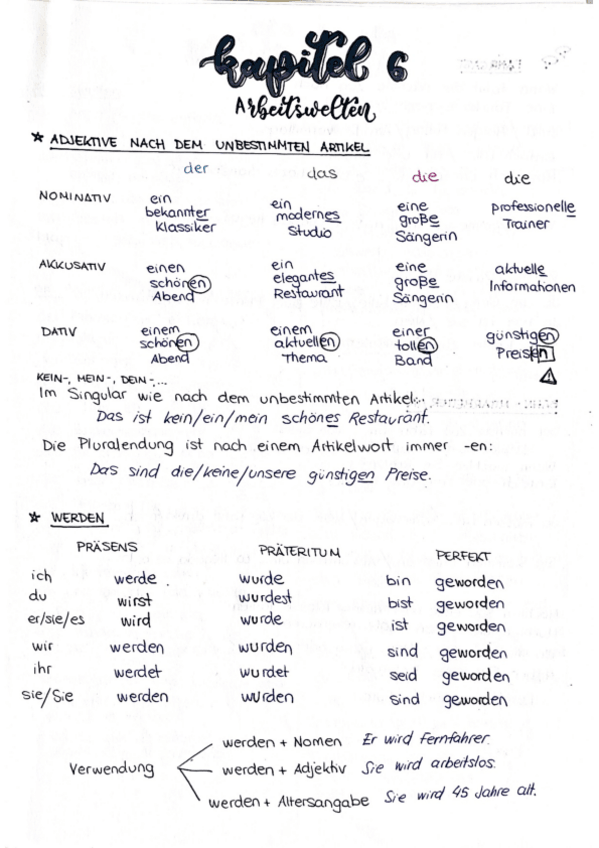 Kapitel 6
Arbeitswelten
* ADJEKTIVE NACH DEM UNBESTIMMTEN ARTIKEL
der das die die
NOMINATIV ein ein eine professionelle
bekannter modernes große Trainer
Klassiker Studio Sängerin
AKKUSATIV einen ein eine aktuelle
schönen elegantes große Informationen
Abend Restaurant Sängerin
DATIV einem einem einer günstigen
schönen aktuellen tollen Preisen
Abend Thema Band
KEIN-, MEIN-, DEIN-,...
Im Singular wie nach dem unbestimmten Artikel:
Das ist kein/ein/mein schönes Restaurant.
Die Pluralendung ist nach einem Artikelwort immer -en:
Das sind die/keine/unsere günstigen Preise.
* WERDEN
PRÄSENS PRÄTERITUM PERFEKT
ich werde wurde bin geworden
du wirst wurdest bist geworden
er/sie/es wird wurde ist geworden
wir werden wurden sind geworden
ihr werdet wurdet seid geworden
sie/Sie werden wurden sind geworden
werden + Nomen Er wird Fernfahrer.
Verwendung werden + Adjektiv Sie wird arbeitslos.
werden + Altersangabe Sie wird 45 Jahre alt.